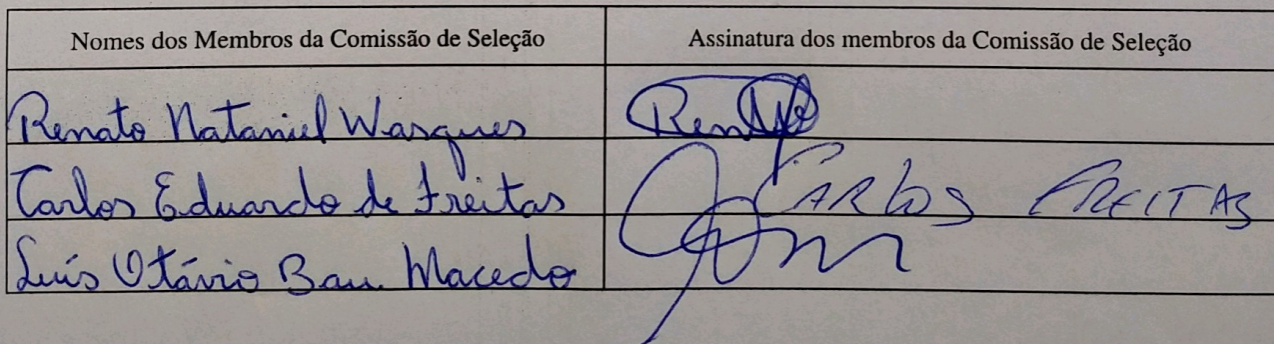 Nomes dos Membros da Comissão de Seleção Assinatura dos membros da Comissão de Seleção
Renato Nataniel Wasques
Carlos Eduardo de Freitas CARLOS FREITAS
Luís Otávio Bau Macedo